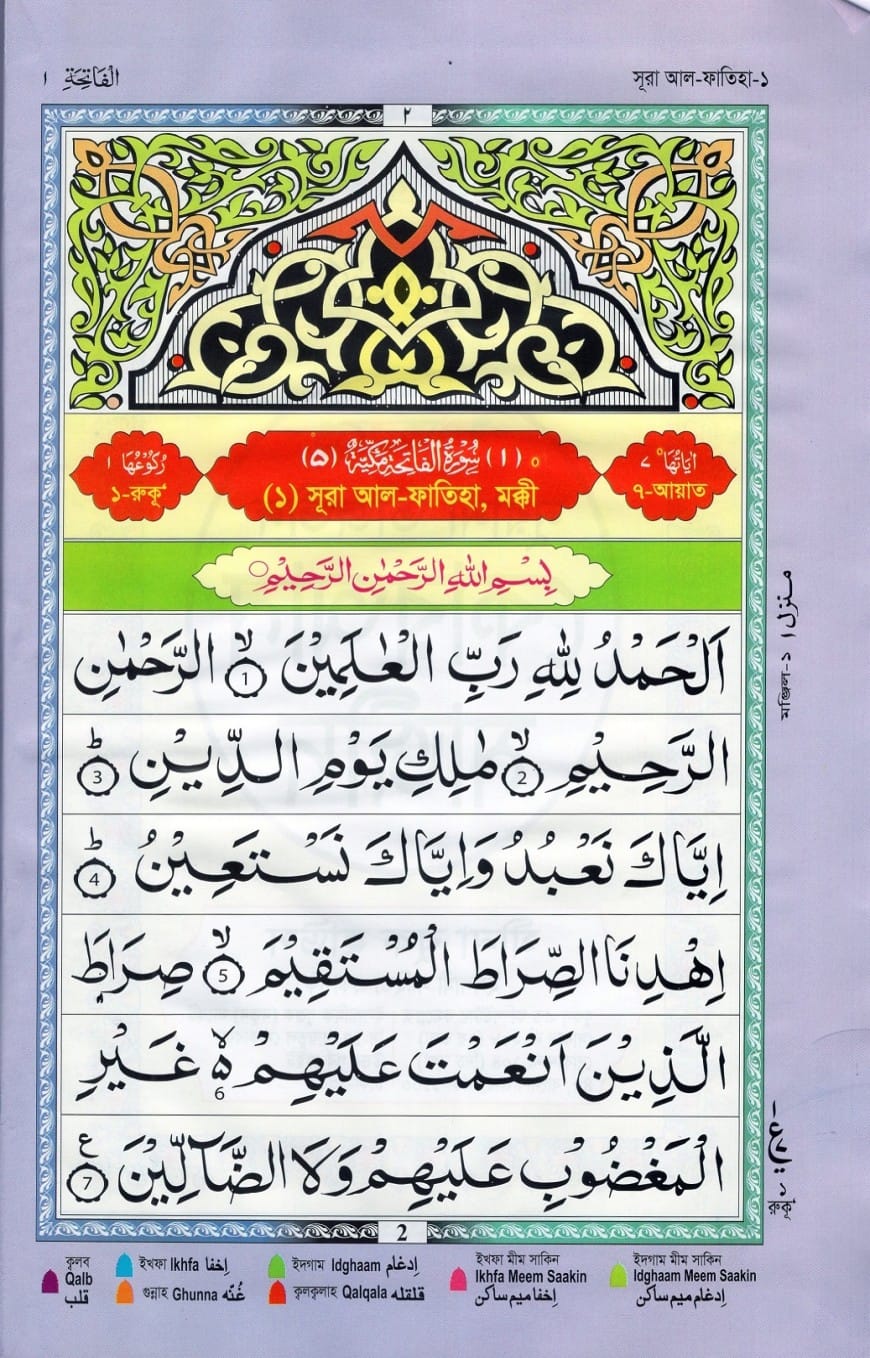 الفَاتِحَةِ ١
সূরা আল-ফাতিহা-১
٢
رُكُوْعُهَا ١
১-রুকূ'
(١) سُوْرَةُ الْفَاتِحَةِ مَكِّيَّةٌ (٥)
(১) সূরা আল-ফাতিহা, মক্কী
اٰيَاتُهَا ٧
৭-আয়াত
بِسْمِ اللهِ الرَّحْمٰنِ الرَّحِيْمِ
اَلْحَمْدُ لِلّٰهِ رَبِّ الْعٰلَمِيْنَ ۙ 1 الرَّحْمٰنِ
الرَّحِيْمِ ۙ 2 مٰلِكِ يَوْمِ الدِّيْنِ ؕ 3
اِيَّاكَ نَعْبُدُ وَاِيَّاكَ نَسْتَعِيْنُ ؕ 4
اِهْدِنَا الصِّرَاطَ الْمُسْتَقِيْمَ ۙ 5 صِرَاطَ
الَّذِيْنَ اَنْعَمْتَ عَلَيْهِمْ ۙ ۵ 6 غَيْرِ
الْمَغْضُوْبِ عَلَيْهِمْ وَلَا الضَّآلِّيْنَ ع 7
منزل ١
মঞ্জিল-১
রুকূ' ১
2
ক্বলব
Qalb
قلب
ইখফা Ikhfa اِخفا
গুন্নাহ Ghunna غُنّه
ইদগাম Idghaam اِدغام
ক্বলক্বলাহ Qalqala قلقله
ইখফা মীম সাকিন
Ikhfa Meem Saakin
اِخفا ميم ساكن
ইদগাম মীম সাকিন
Idghaam Meem Saakin
اِدغام ميم ساكن